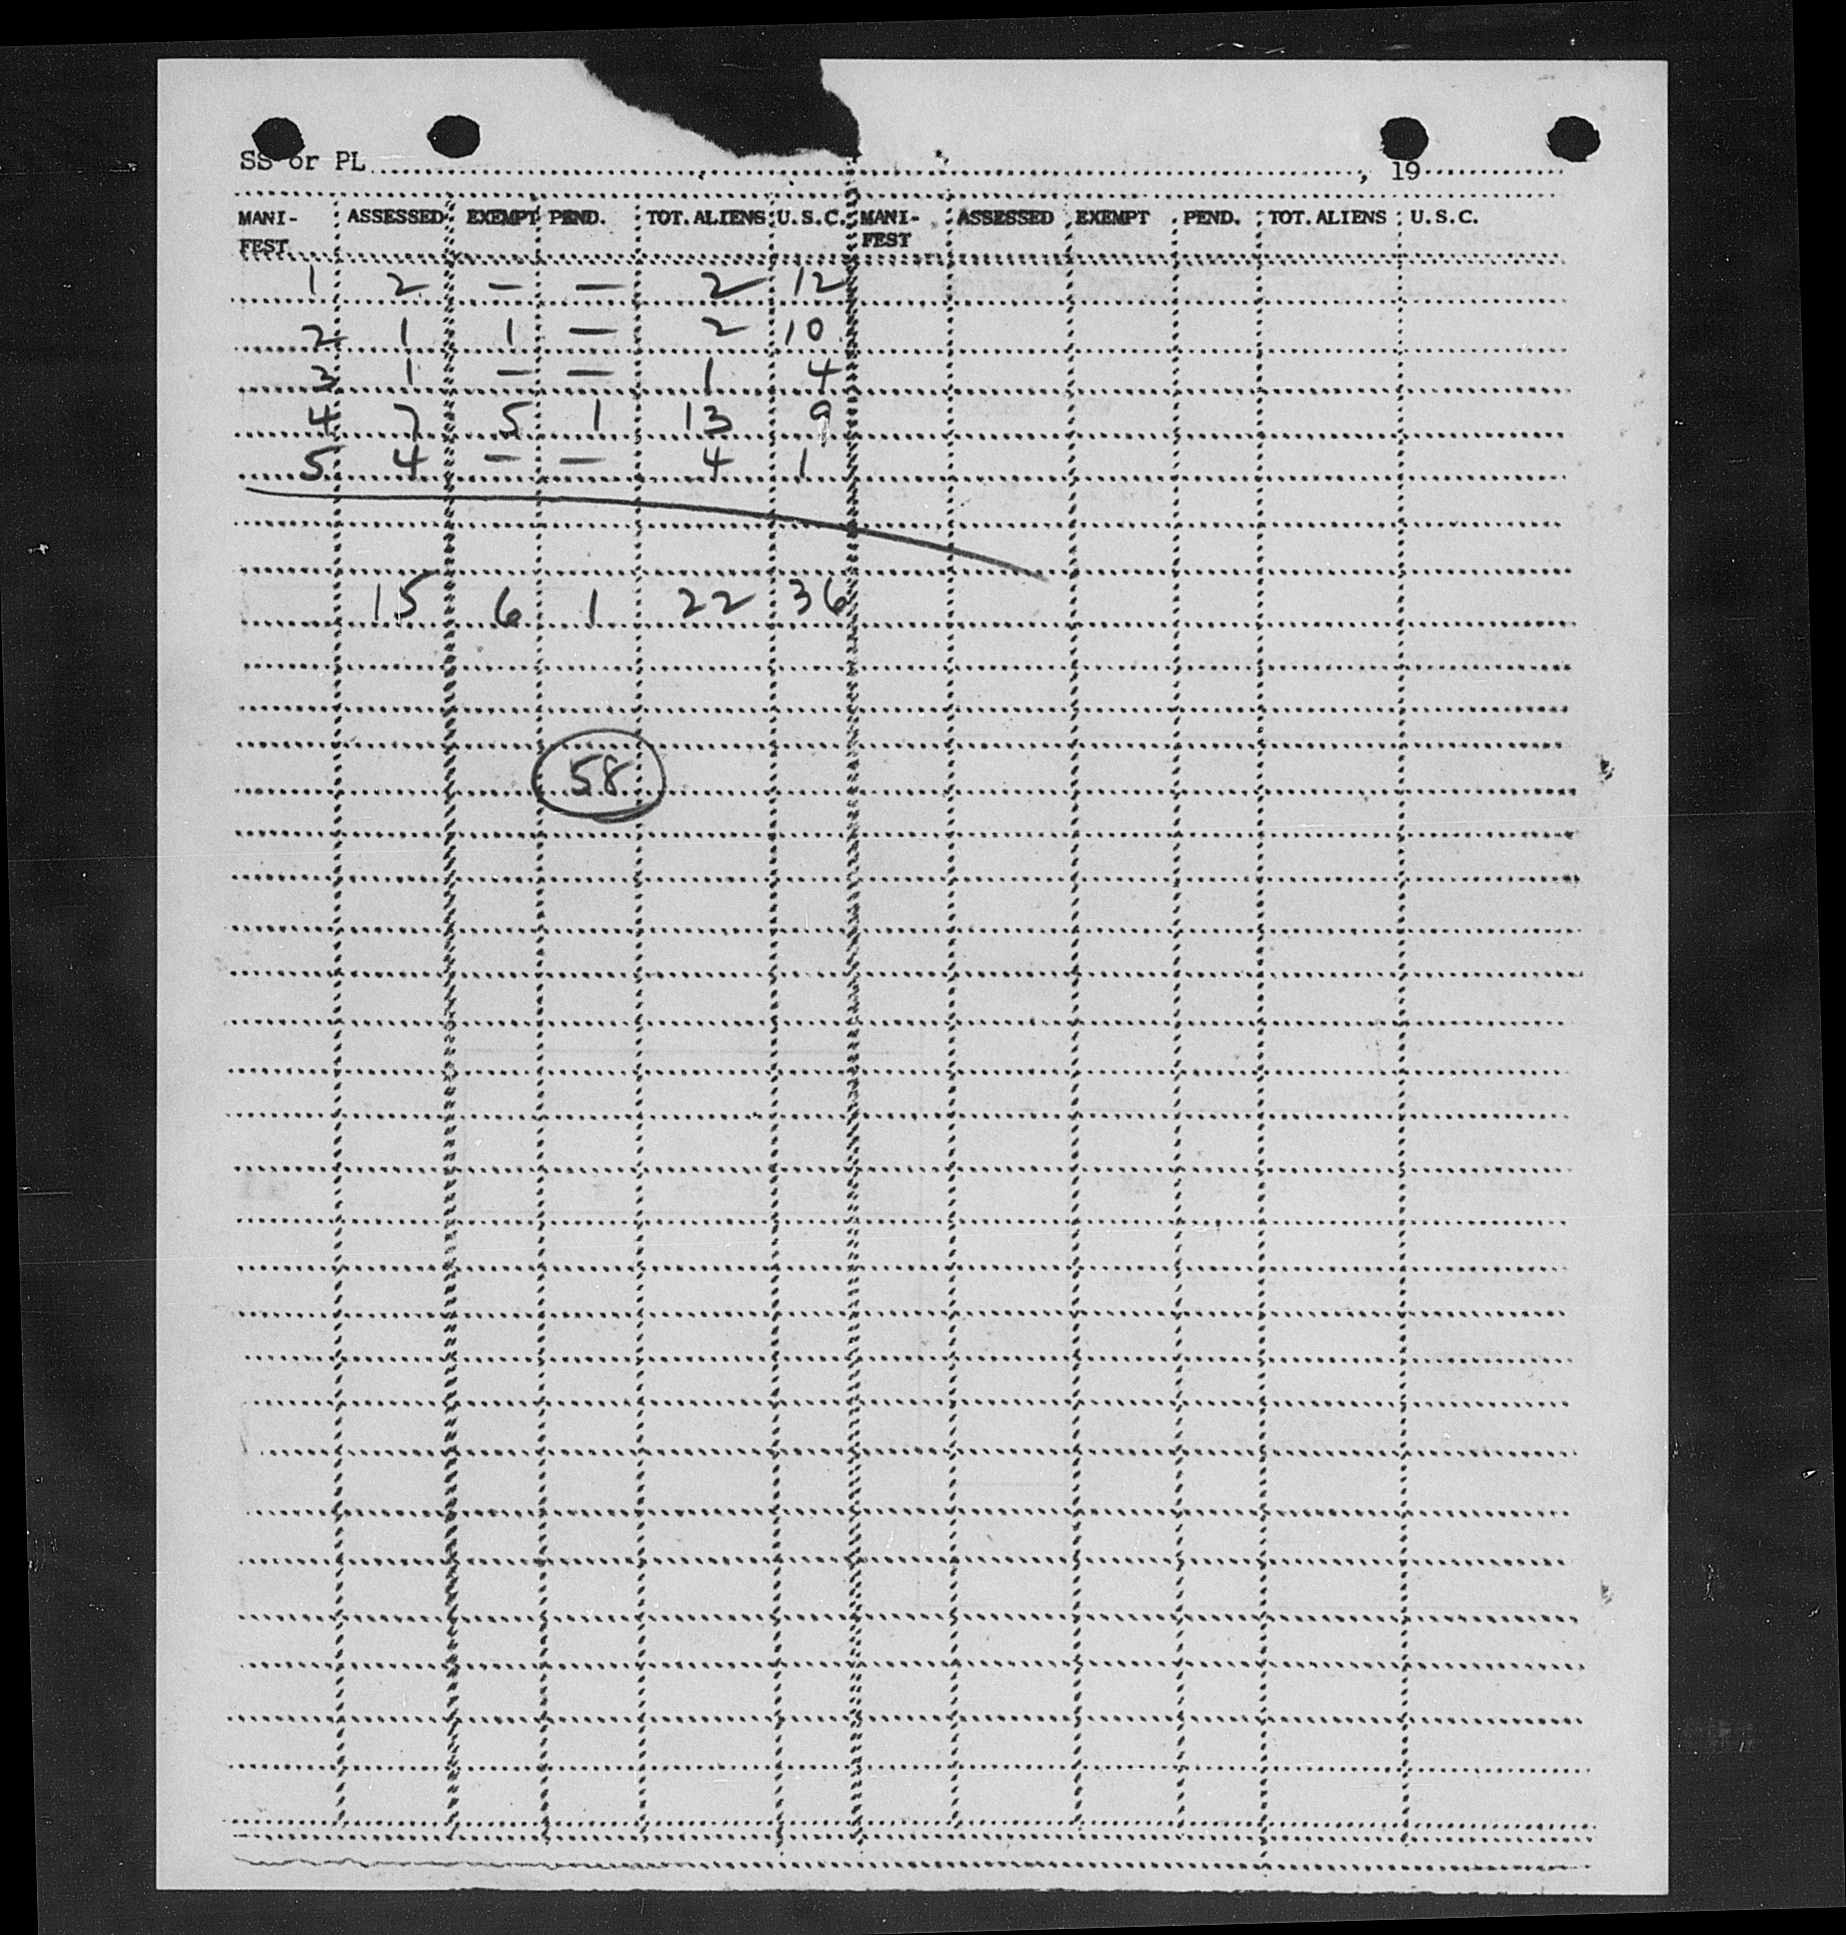 SS or PL , 19
MANI-FEST ASSESSED EXEMPT PEND. TOT. ALIENS U.S.C. MANI-FEST ASSESSED EXEMPT PEND. TOT. ALIENS U.S.C.
1 2 — — 2 12
2 1 1 — 2 10
3 1 — — 1 4
4 7 5 1 13 9
5 4 — — 4 1
15 6 1 22 36
58